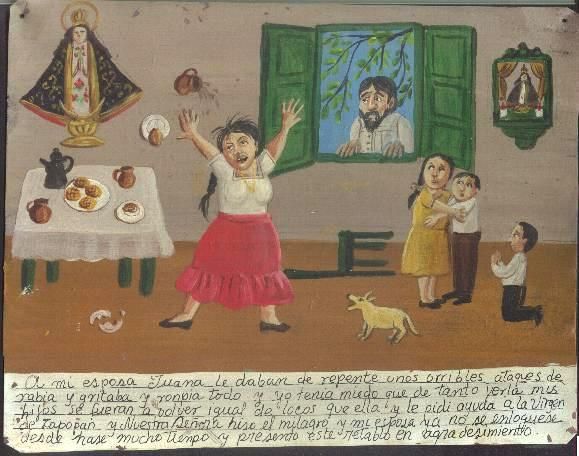 A mi esposa Juana le daban de repente unos orribles ataques de
rabia y gritaba y ronpia todo y yo tenia miedo que de tanto verla mis
hijos se fueran a bolver igual de locos que ella y le pidi ayuda a la Virgen
de Zapopan y Nuestra Señora hiso el milagro y mi esposa ya no se enloquese
desde hase mucho tienpo y presento este retablo en agradesimiento.